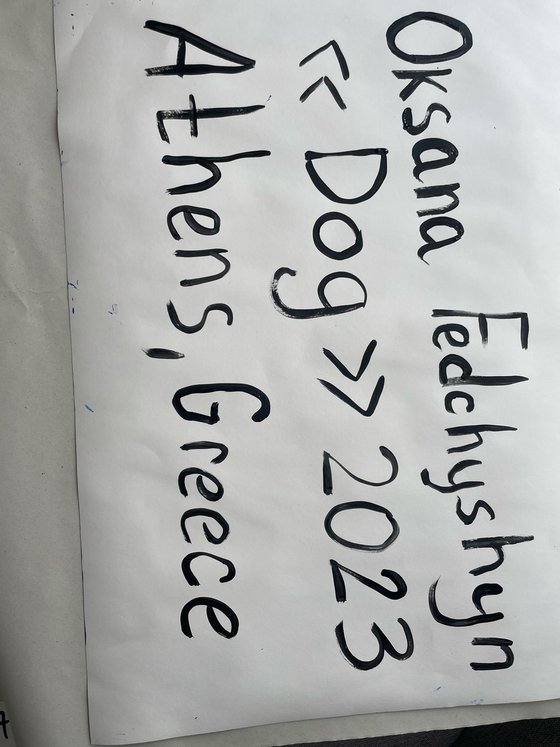 Oksana Fedchyshyn
<< Dog >> 2023
Athens, Greece